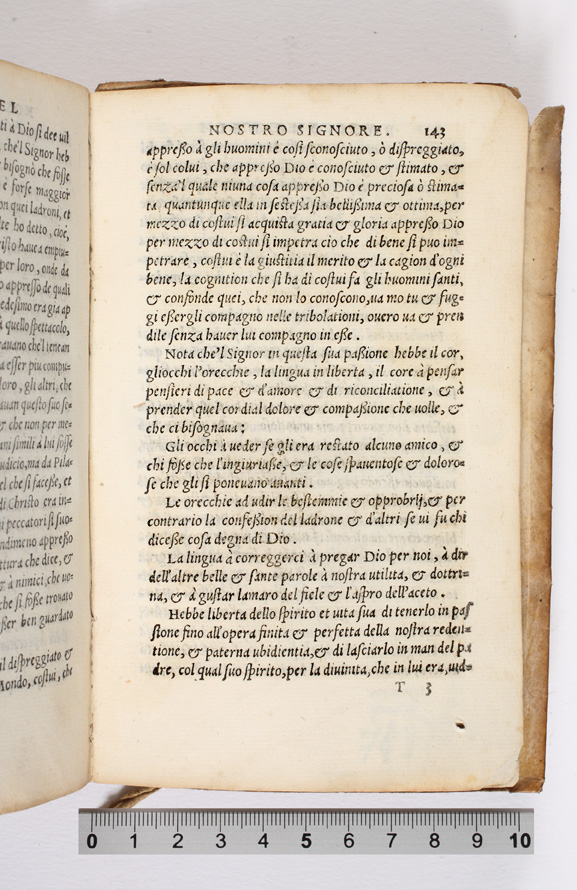 EL
ti à Dio si dee uil
che'l Signor heb
bisognò che fosse
è forse maggior
on quei ladroni, et
te ho detto, cioè,
risto haueа empiu-
per loro, onde da
o appresso de quali
edesimo era gia ap
à quello spettacolo,
auano che'l tenean
a esser piu compu-
loro, gli altri, che
auan questo suo se-
& che non per me-
ani simili à lui fosse
udicio, ma da Pila-
el che si facesse, et
di Christo era in-
i peccatori si suo-
ndimeno appresso
ttura che dice, &
& à nimici, che uo-
che si fosse trouato
sser ben guardato
il dispreggiato &
Mondo, costui, che
NOSTRO SIGNORE. 143
appresso à gli huomini è così sconosciuto, ò dispreggiato,
è sol colui, che appresso Dio è conosciuto & stimato, &
senza'l quale niuna cosa appresso Dio è preciosa ò stima-
ta, quantunque ella in se stessa sia bellissima & ottima, per
mezzo di costui si acquista gratia & gloria appresso Dio
per mezzo di costui si impetra cio che di bene si puo im-
petrare, costui è la giustitia il merito & la cagion d'ogni
bene, la cognition che si ha di costui fa gli huomini santi,
& confonde quei, che non lo conoscono, ua mo tu & fug-
gi essergli compagno nelle tribolationi, ouero ua & pren
dile senza hauer lui compagno in esse.
Nota che'l Signor in questa sua passione hebbe il cor,
gliocchi l'orecchie, la lingua in liberta, il core à pensar
pensieri di pace & d'amore & di riconciliatione, & à
prender quel cordial dolore & compassione che uolle, &
che ci bisognaua;
Gli occhi à ueder se gli era restato alcuno amico, &
chi fosse che l'ingiuriasse, & le cose spauentose & doloro-
se che gli si poneuano auanti.
Le orecchie ad udir le bestemmie & opprobrij, & per
contrario la confession del ladrone & d'altri se ui fu chi
dicesse cosa degna di Dio.
La lingua à correggerci à pregar Dio per noi, à dir
dell'altre belle & sante parole à nostra utilita, & dottri-
na, & à gustar lamaro del fiele & l'aspro dell'aceto.
Hebbe liberta dello spirito et uita sua di tenerlo in pas
sione fino all'opera finita & perfetta della nostra reden-
tione, & paterna ubidientia, & di lasciarlo in man del pa
dre, col qual suo spirito, per la diuinita, che in lui era, uid-
T 3
0 1 2 3 4 5 6 7 8 9 10